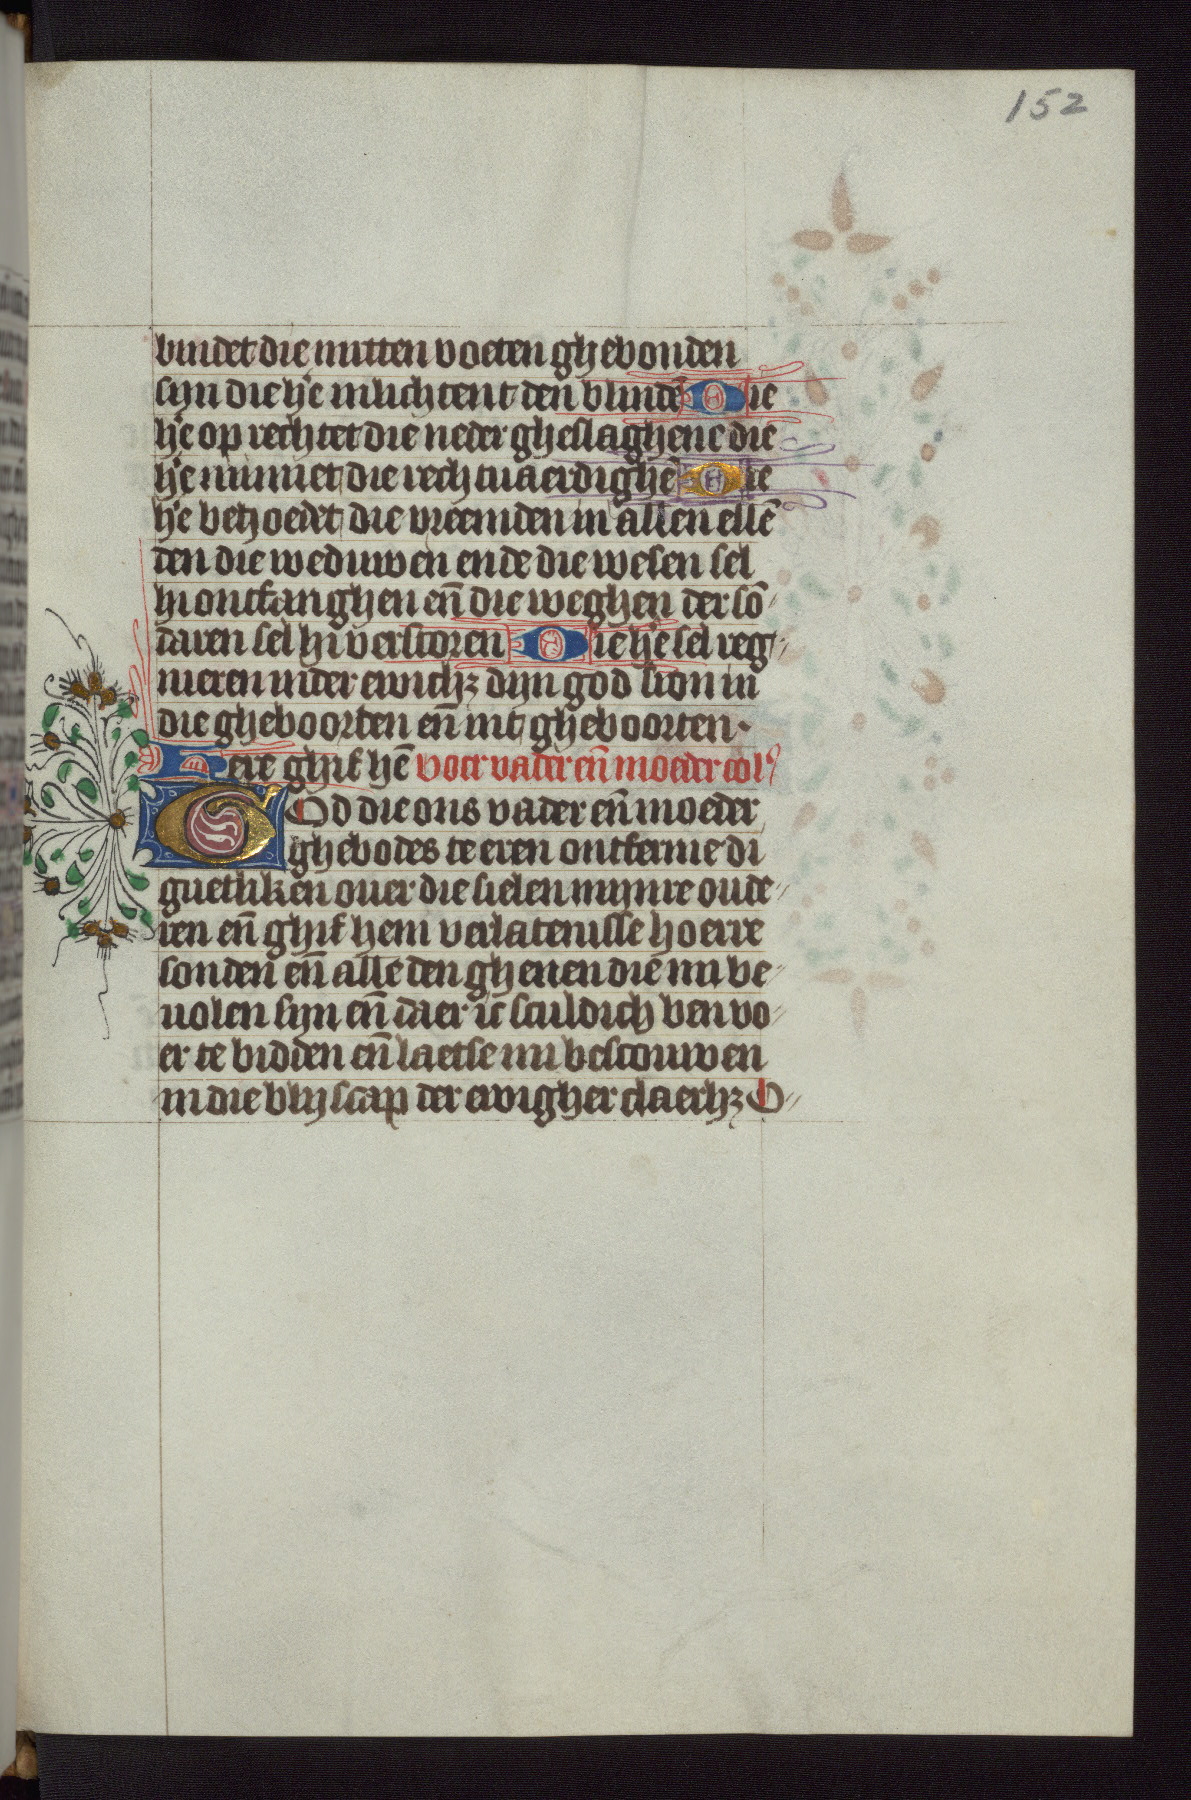 152
bindet die mitten voeten ghebonden
sijn die he̅ inlichtent den blinde̅ Die
he̅ op rechtet die neder gheslaghene die
he̅ minnet die rechtuaerdighe̅ Die
he̅ behoedet die vreemden in allen elle̅
den die weduwen ende die wesen sel
hi ontfanghen en̅ die weghen der so̅-
daren sel hi verstoren Die he̅ sel reg-
nieren inder ewich₃ dijn god sion in
die gheboorten en̅ int gheboorten.
Here ghif he̅ voer vader en̅ moeder col'
God die ons vader en̅ moeder
ghebodes te eren ontferme di
guetliken ouer die sielen mijnre oude-
ren en̅ ghif hem verlatenisse hoerre
sonden en̅ alle den ghenen die mi be-
uolen sijn en̅ daer ic sculdich ben vo-
er te bidden en̅ laetse mi bescouwen
in die blijscap der ewigher claerh₃ O-